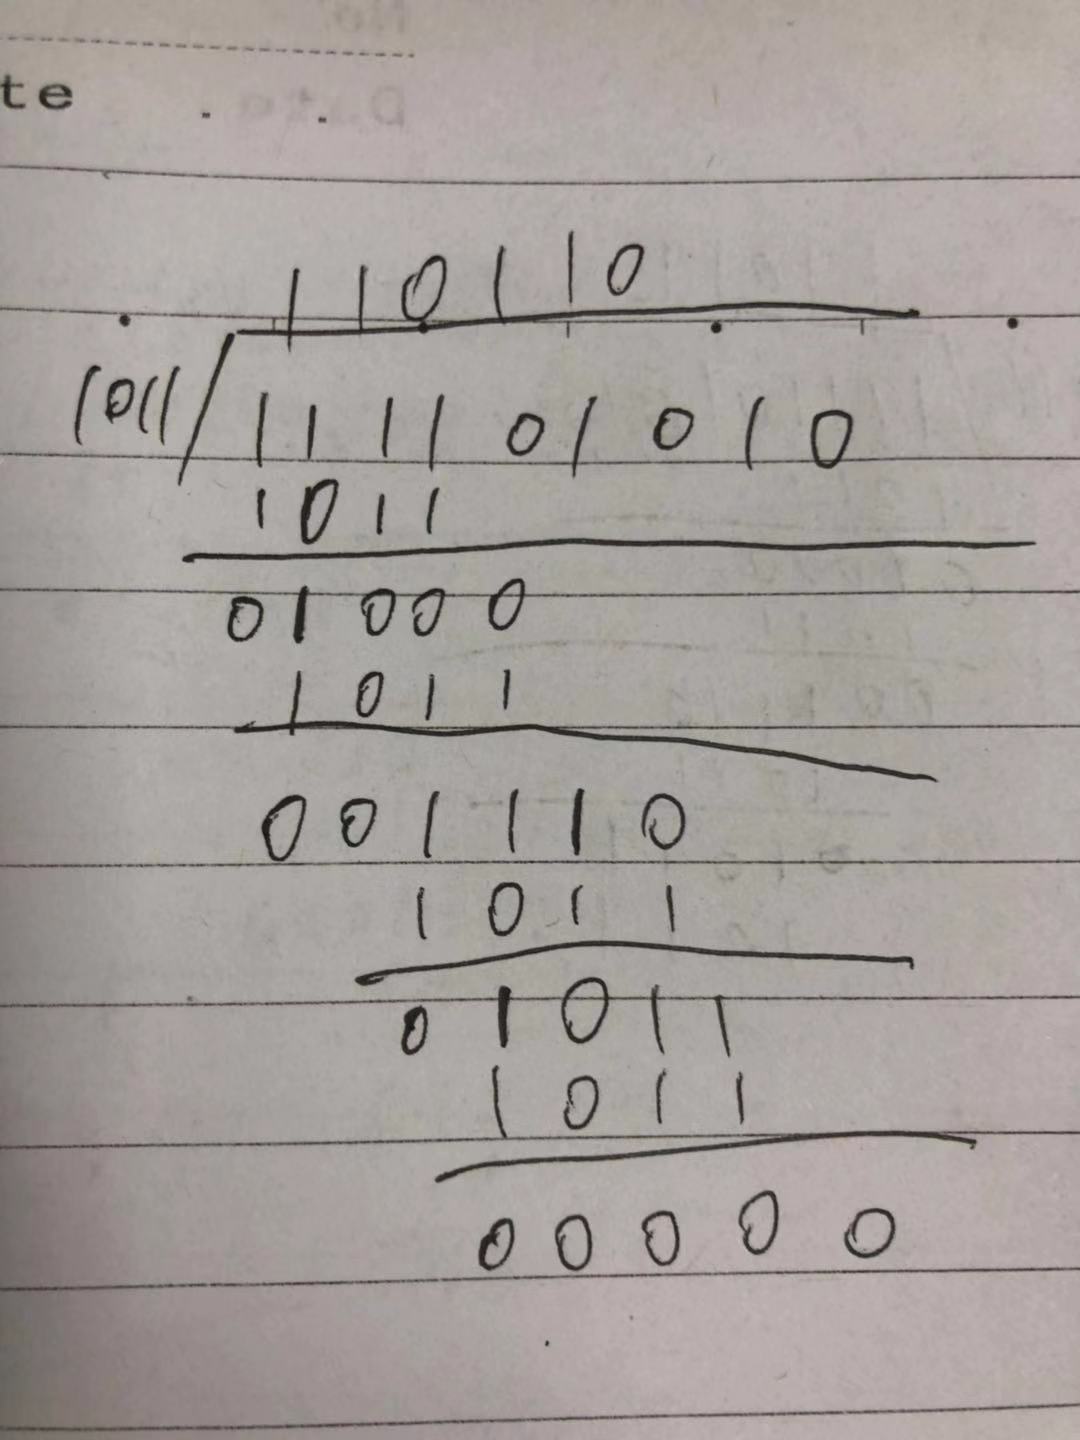 te . .
110110
1011/111101010
1011
01000
1011
001110
1011
01011
1011
00000